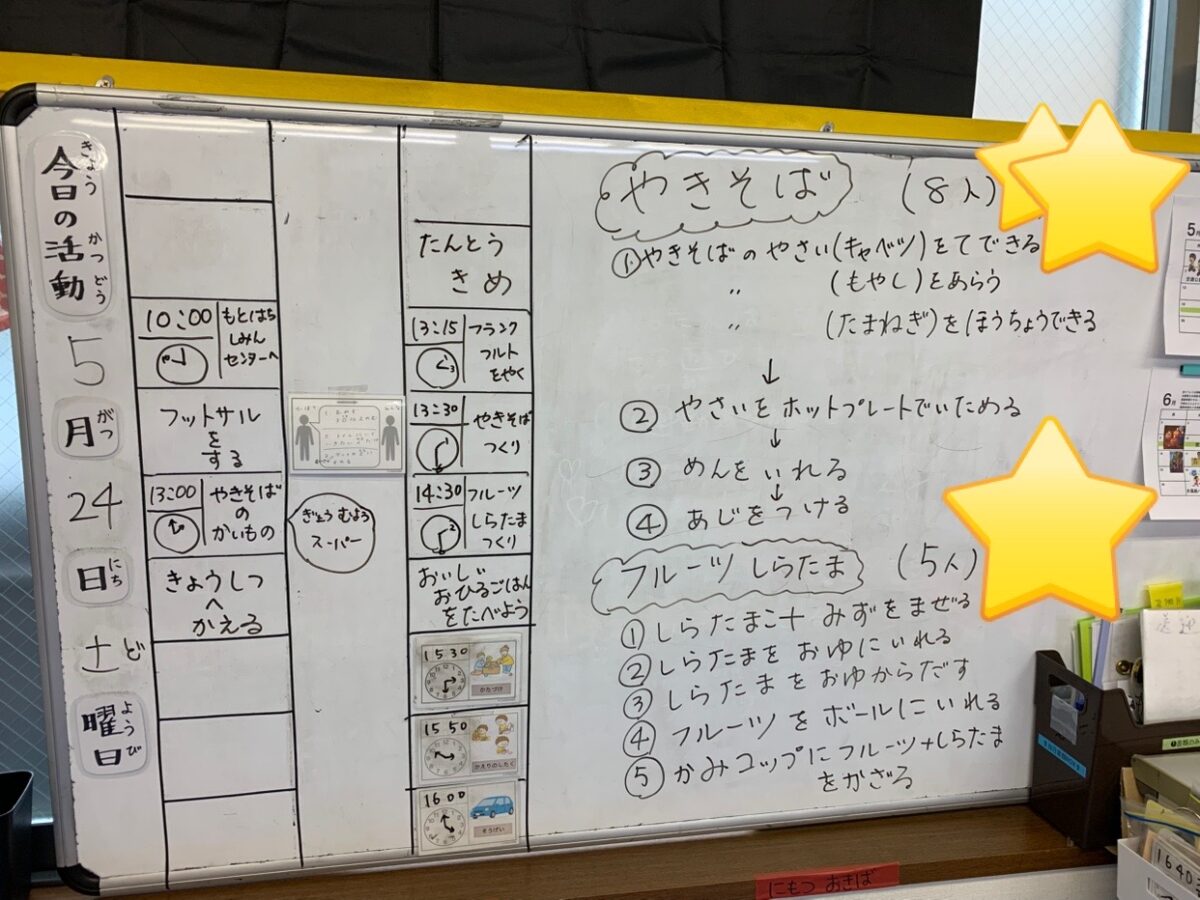 きょう
今日の活動
かつどう
5
月
がつ
24
日
にち
土
ど
曜日
ようび
10:00
もとはち
しみん
センターへ
フットサル
を
する
13:00
やきそば
の
かいもの
きょうしつ
へ
かえる
ぎょうむよう
スーパー
たんとう
きめ
13:15
フランク
フルト
をやく
13:30
やきそば
つくり
14:30
フルーツ
しらたま
つくり
おいしい
おひるごはん
をたべよう
15 30
かたづけ
15 50
かえりのしたく
16 00
そうげい
やきそば (8人)
①やきそばのやさい(キャベツ)をてできる
〃 (もやし)をあらう
〃 (たまねぎ)をほうちょうできる
↓
② やさいをホットプレートでいためる
↓
③ めんをいれる
↓
④ あじをつける
フルーツしらたま (5人)
① しらたまこ+みずをまぜる
② しらたまをおゆにいれる
③ しらたまをおゆからだす
④ フルーツをボールにいれる
⑤ かみコップにフルーツ+しらたま
をかざる
5月
6月
にもつ おきば
1640